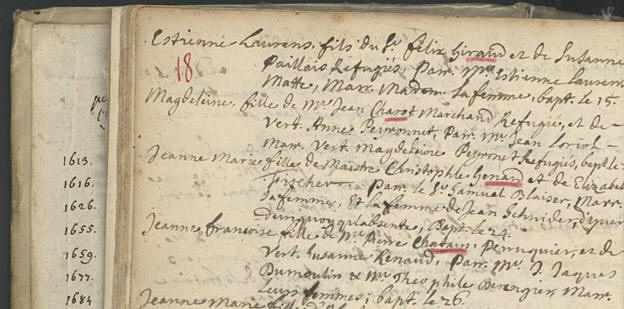 Estienne Laurens. fils du Sr. félix Giraud et de Susanne
18
Paillois Refugiés. Parr. Mr. Estienne Laurens
Matte, Marr. Madem. la femme, bapt. le 15.
Magdeleine, fille de Mr. Jean Charot Marchand Refugié, et de
Vert. Anne Peyronnet, Par. Mr. Jean Loriol
Mar. Vert. Magdeleine Peyronet Refugiés, bapt. le
Jeanne Marie fille de Maistre Christophle Genard et de Elizabet
Fischer Par. le Sr. Samuel Blaiser, Marr.
la femme, Et la femme de Jean Schnider, d'
quoyqu'absente, Bapt. le 24.
Jeanne francoise fille de Mr. Pierre Chatain; Perruquier, et de
Vert. Susanne Renaud, Par. Mr. J. Jaques
Dumoulin & Mr. Theophile Berengier, Marr.
Leurs femmes; bapt. le 26.
Jeanne Marie fille
1613.
1616.
1626.
1655.
1659.
1677.
1684